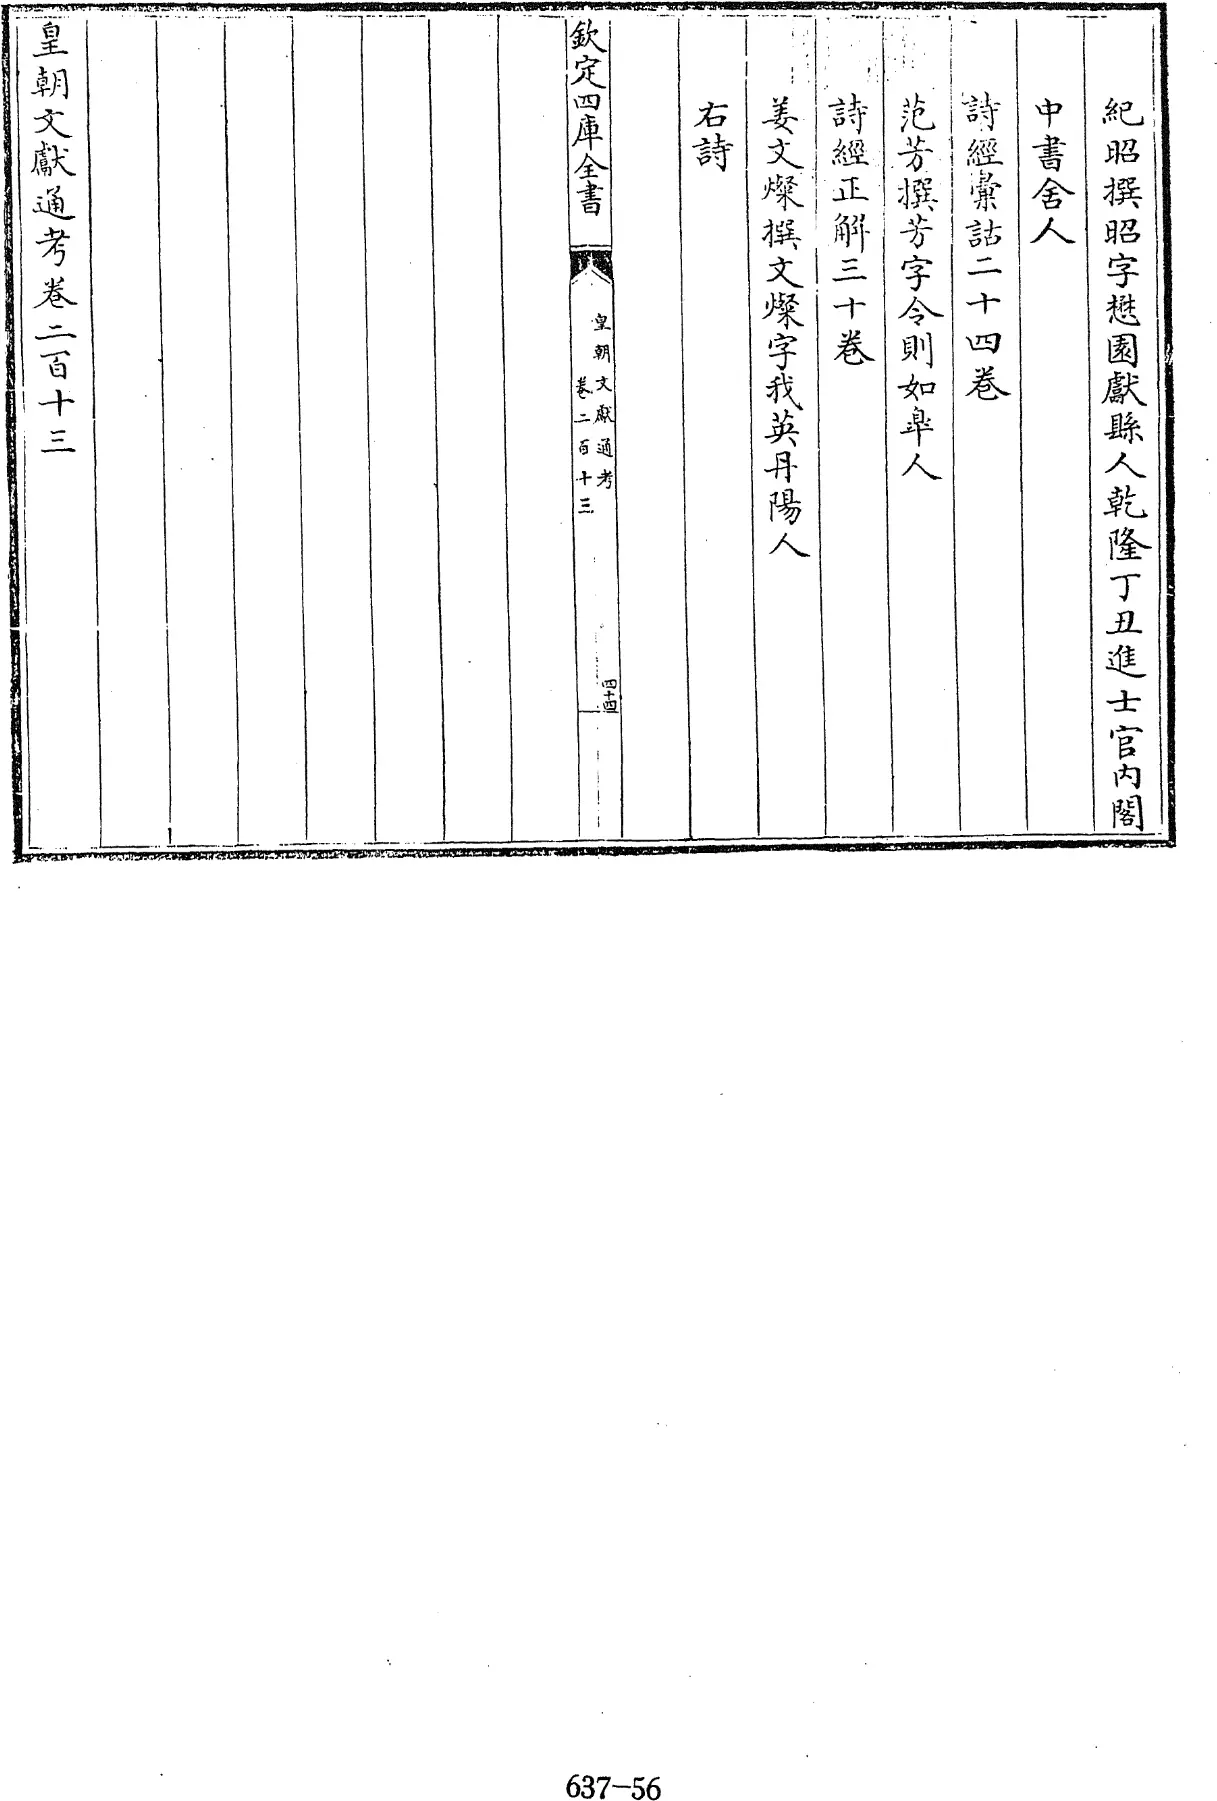 紀昭撰昭字懋園獻縣人乾隆丁丑進士官內閣
中書舍人
詩經彚詁二十四卷
范芳撰芳字令則如臯人
詩經正解三十卷
姜文燦撰文燦字我英丹陽人
右詩
欽定四庫全書
皇朝文獻通考
卷二百十三
四十四
皇朝文獻通考卷二百十三
637-56